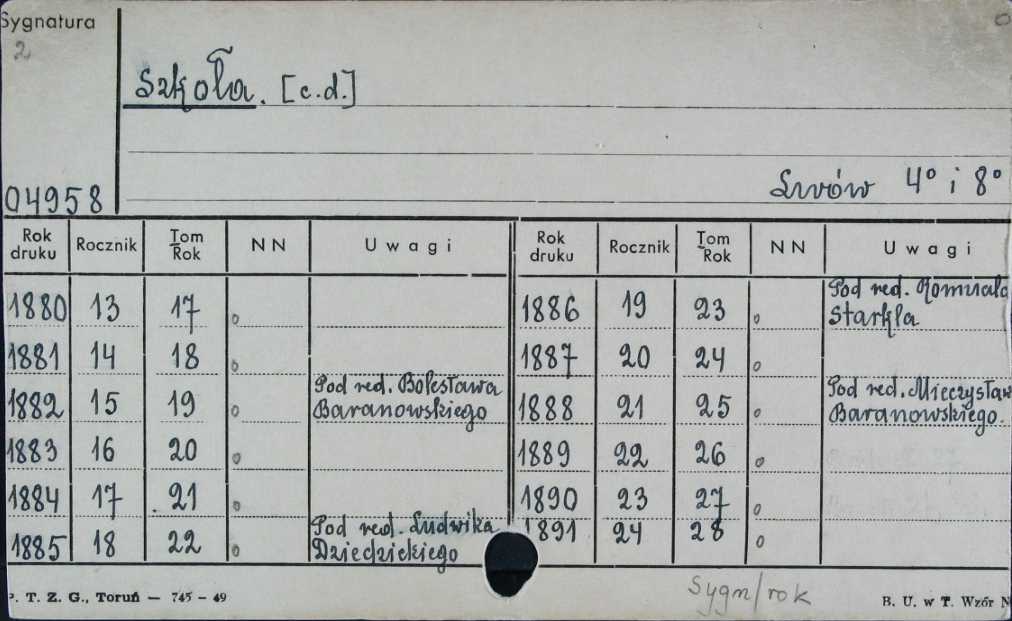 Sygnatura
2
Szkoła. [c.d.]
Lwów 4° i 8°
04958
Rok druku Rocznik Tom Rok NN Uwagi Rok druku Rocznik Tom Rok NN Uwagi
1880 13 17 1886 19 23 Pod red. Romuala Starkla
1881 14 18 1887 20 24
1882 15 19 Pod red. Bolesława Baranowskiego 1888 21 25 Pod red. Mieczysław Baranowskiego.
1883 16 20 1889 22 26
1884 17 21 1890 23 27
1885 18 22 Pod red. Ludwika Dziedzickiego 1891 24 28
P. T. Z. G., Toruń — 745 – 49
Sygn/rok
B. U. w T. Wzór N